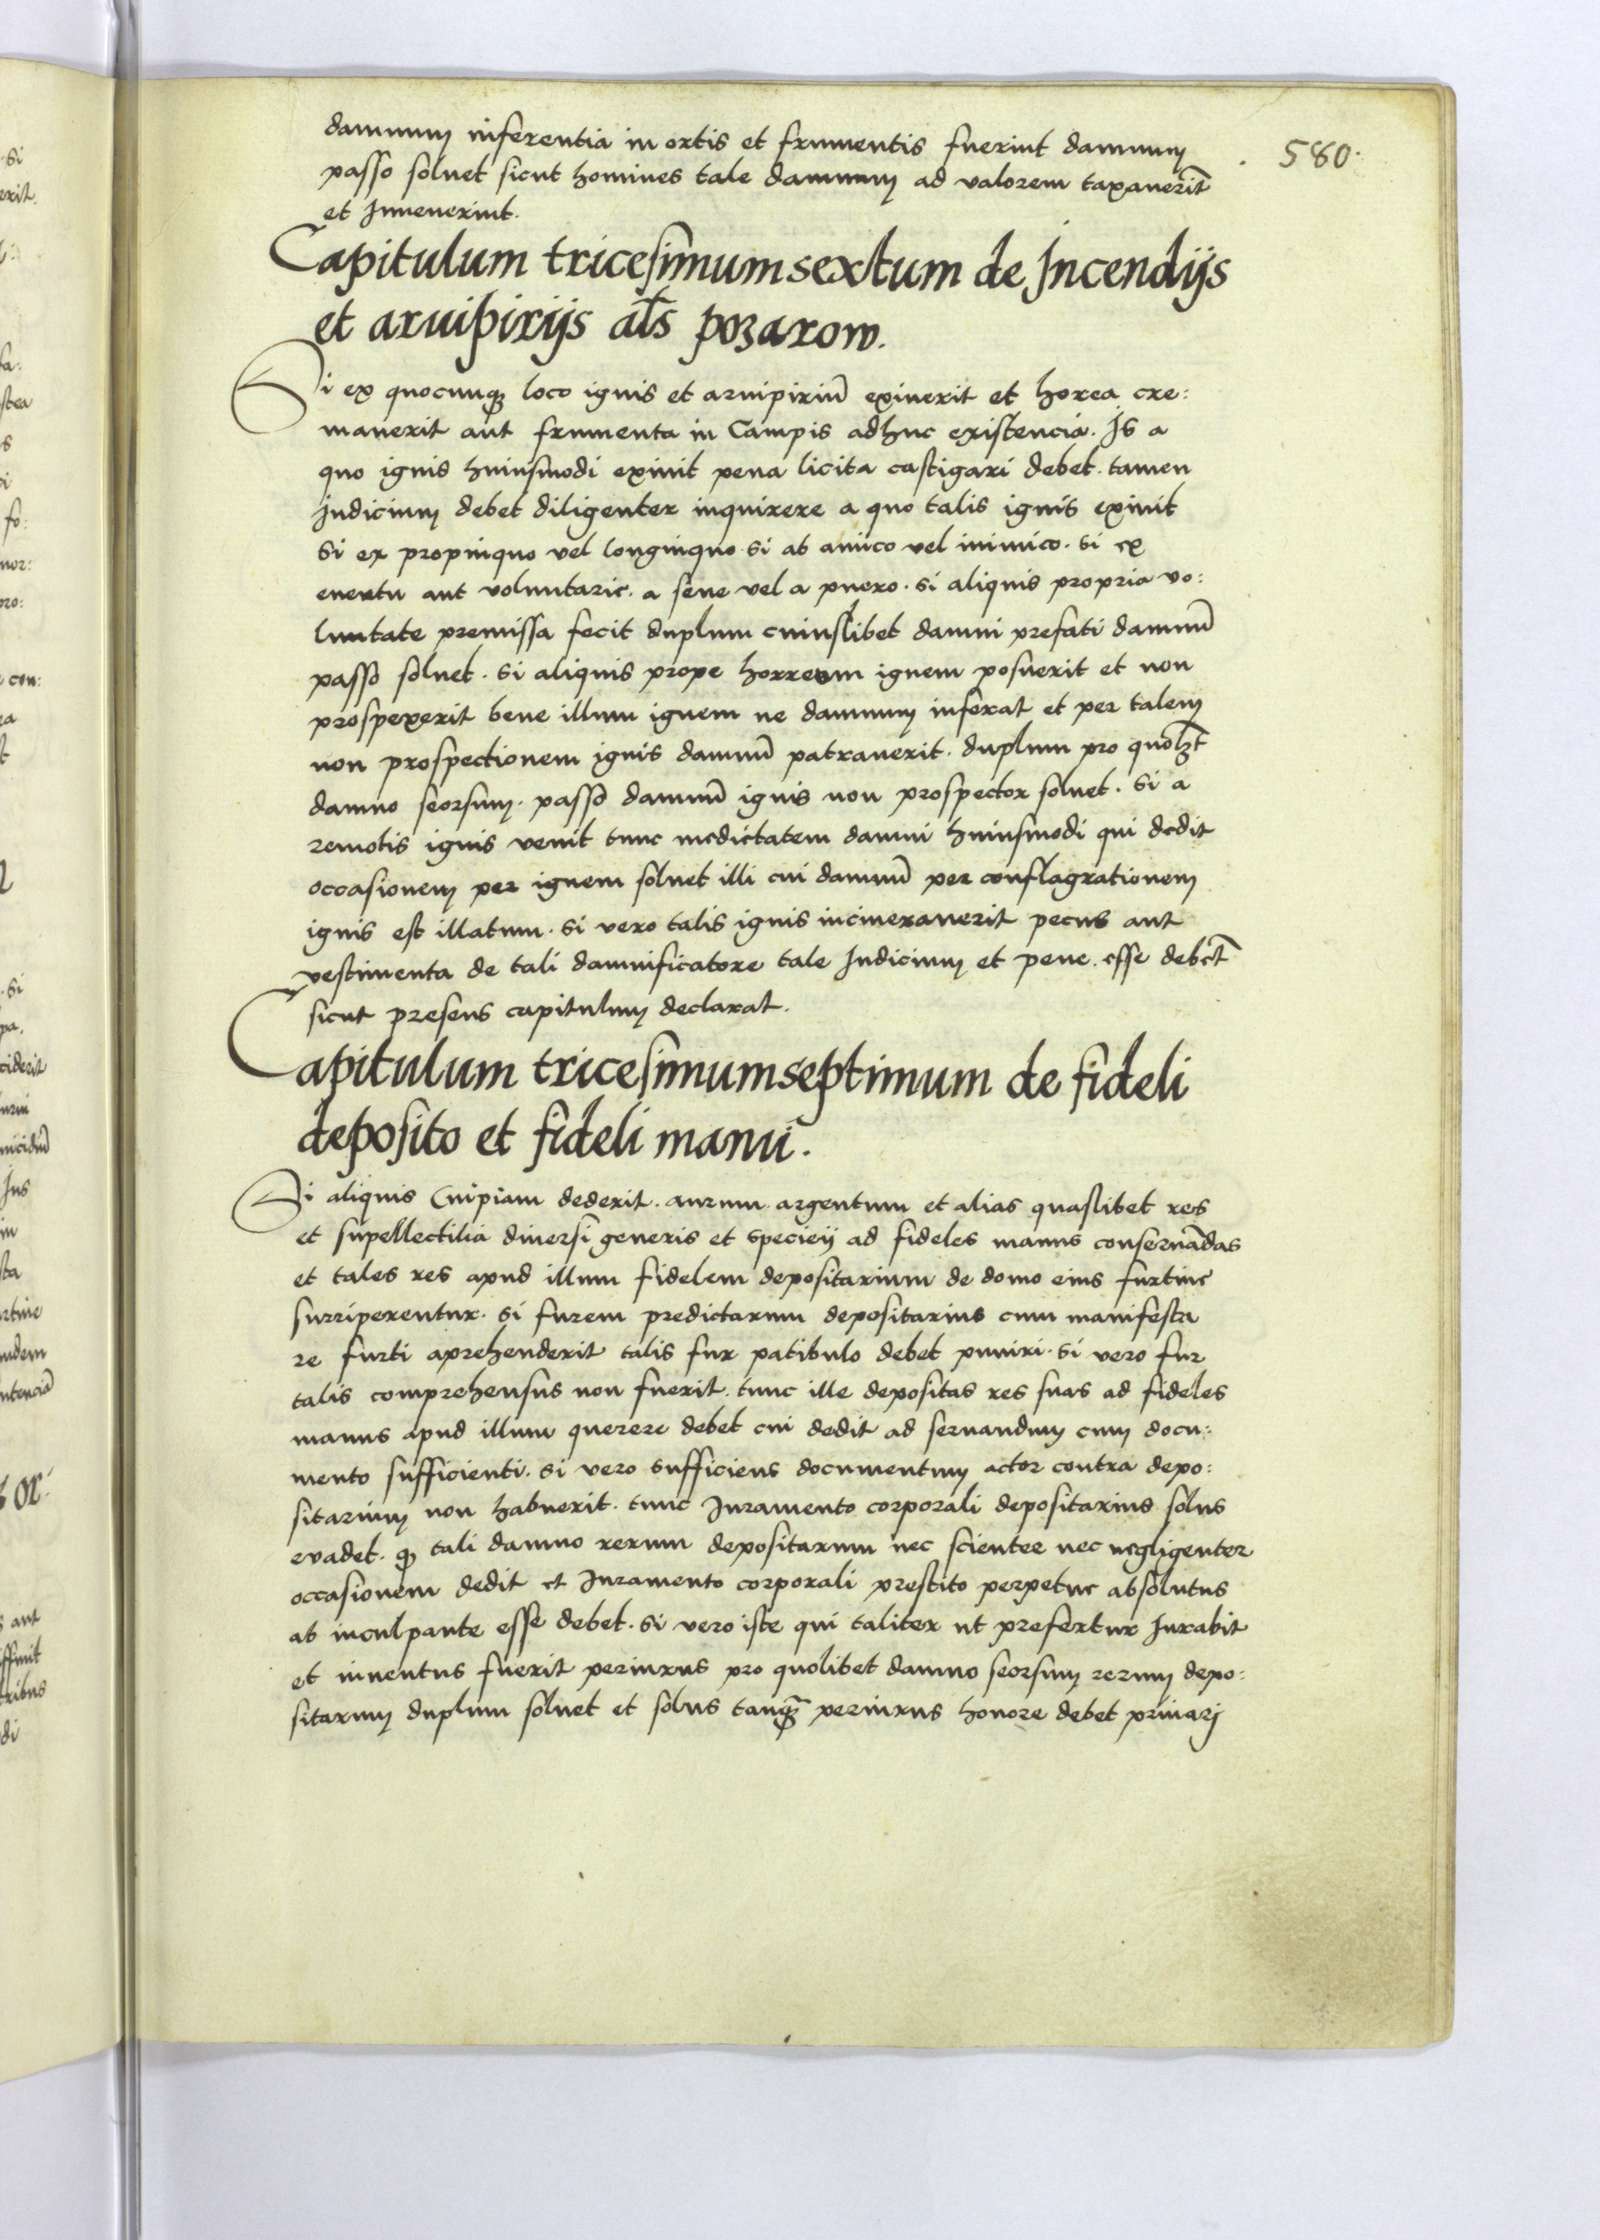 damnum inferentia in ortis et frumentis fuerint damnum
passo solvet sicut homines tale damnum ad valorem taxaverīt
et Invenerint.
580.
Capitulum tricesimumsextum de Incendijs
et aruipirijs al̄s pozarow.
Si ex quocunq̧ loco ignis et aruipiriū exiverit et horea cre:
maverit aut frumenta in Campis adhuc existencia. Is a
quo ignis huiusmodi exiuit pena licita castigari debet. tamen
Judicium debet diligenter inquirere a quo talis ignis exiuit
Si ex propinquo vel longinquo. si ab amico vel inimico. si ex
eventu aut voluntarie. a sene vel a puero. si aliquis propria vo:
luntate premissa fecit duplum cuiuslibet damni prefati damnū
passo solvet. Si aliquis prope horreum ignem posuerit et non
prospexerit bene illum ignem ne damnum inferat et per talem
non prospectionem ignis damnū patraverit. duplum pro quolꝫt
damno seorsum. passo damnū ignis non prospector solvet. Si a
remotis ignis venit tunc medietatem damni huiusmodi qui dedit
occasionem per ignem solvet illi cui damnū per conflagrationem
ignis est illatum. si vero talis ignis incineraverit pecus aut
vestimenta de tali damnificatore tale Judicium et pene esse debēt
sicut presens capitulum declarat.
Capitulum tricesimumseptimum de fideli
deposito et fideli manu.
Si aliquis Cuipiam dederit. aurum. argentum et alias quaslibet res
et supellectilia diuersi generis et speciei ad fideles manus conseruādas
et tales res apud illum fidelem depositarium de domo eius furtiue
surriperentur. si furem predictarum depositarius cum manifesta
re furti aprehenderit talis fur patibulo debet puniri. si vero fur
talis comprehensus non fuerit. tunc ille depositas res suas ad fideles
manus apud illum querere debet cui dedit ad servandum cum docu:
mento sufficienti. si vero sufficiens documentum actor contra depo:
sitarium non habuerit. tunc Juramento corporali depositarius solus
evadet. ꝙ tali damno rerum depositarum nec scienter nec negligenter
occasionem dedit et Juramento corporali prestito perpetue absolutus
ab inculpante esse debet. si vero iste qui taliter ut prefertur Jurabit
et inventus fuerit periurus pro quolibet damno seorsum rerum depo:
sitarum duplum solvet et solus tanq̄ periurus honore debet priuarj